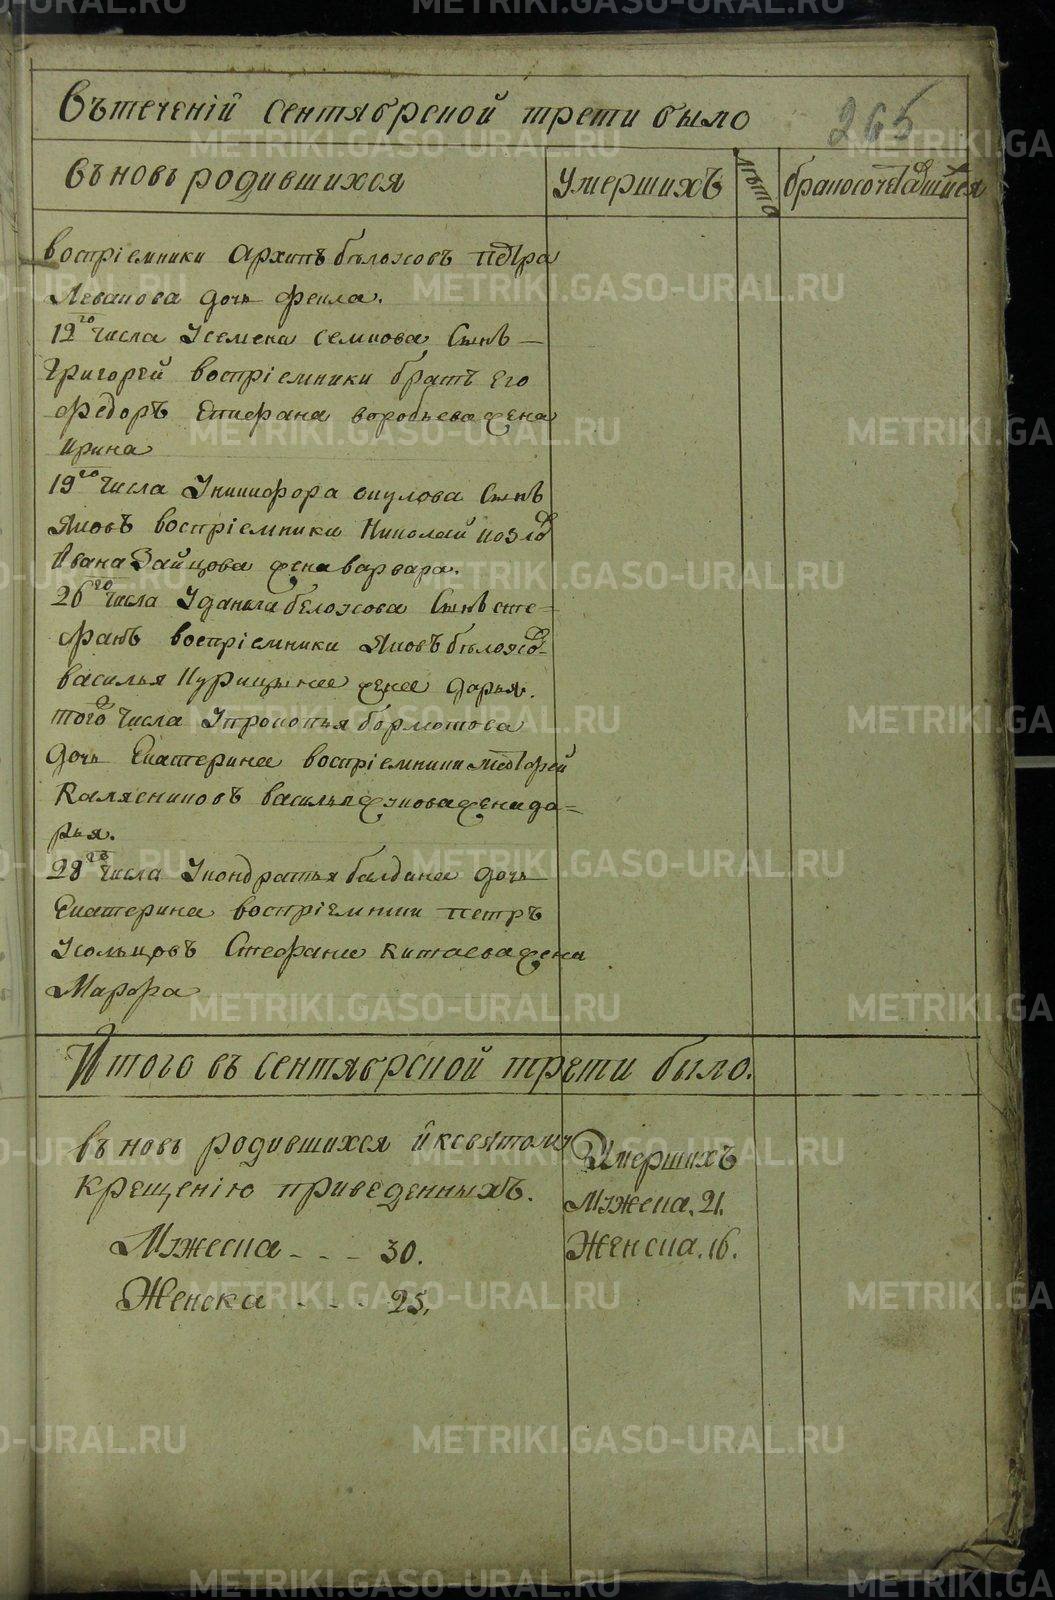 Вътеченїй сентябрской трети было
265
въновь родившихся
Умершихъ
лѣта
бракосочетавшихся
воспріемники Архипъ бѣложовъ Петра
Леванова дочь фекла.
12го числа Усемена семкова Сынъ
Григорей воспріемники братъ его
Федоръ Епифана воробьева жена
ирина
19го числа Уникифора окулова Сынъ
Яковъ воспріемники Николай
Ивана Зайцова жена варвара.
26го числа Уданила беложова Сынъ сте=
фанъ воспріемники Яковъ
василья Курицына жена дарья.
того числа Упрокопья бормотова
дочь Екатерина воспріемники
Калясниковъ василья жена да=
рья.
28го числа Укондратья балдина дочь
Екатерина воспріемники петръ
Усольцовъ Стефана китаева жена
Марфа
Итого въ сентябрской трети было.
въ новь родившихся и ксвятому
крещенію приведенныхъ.
Мужеска - - - 30.
Женска - - - 25.
Умершихъ
Мужеска. 21.
Женска. 16.
METRIKI.GASO-URAL.RU